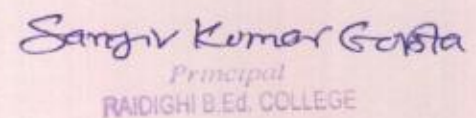 Sangiv Kumar Gupta
Principal
RAIDIGHI B.Ed. COLLEGE